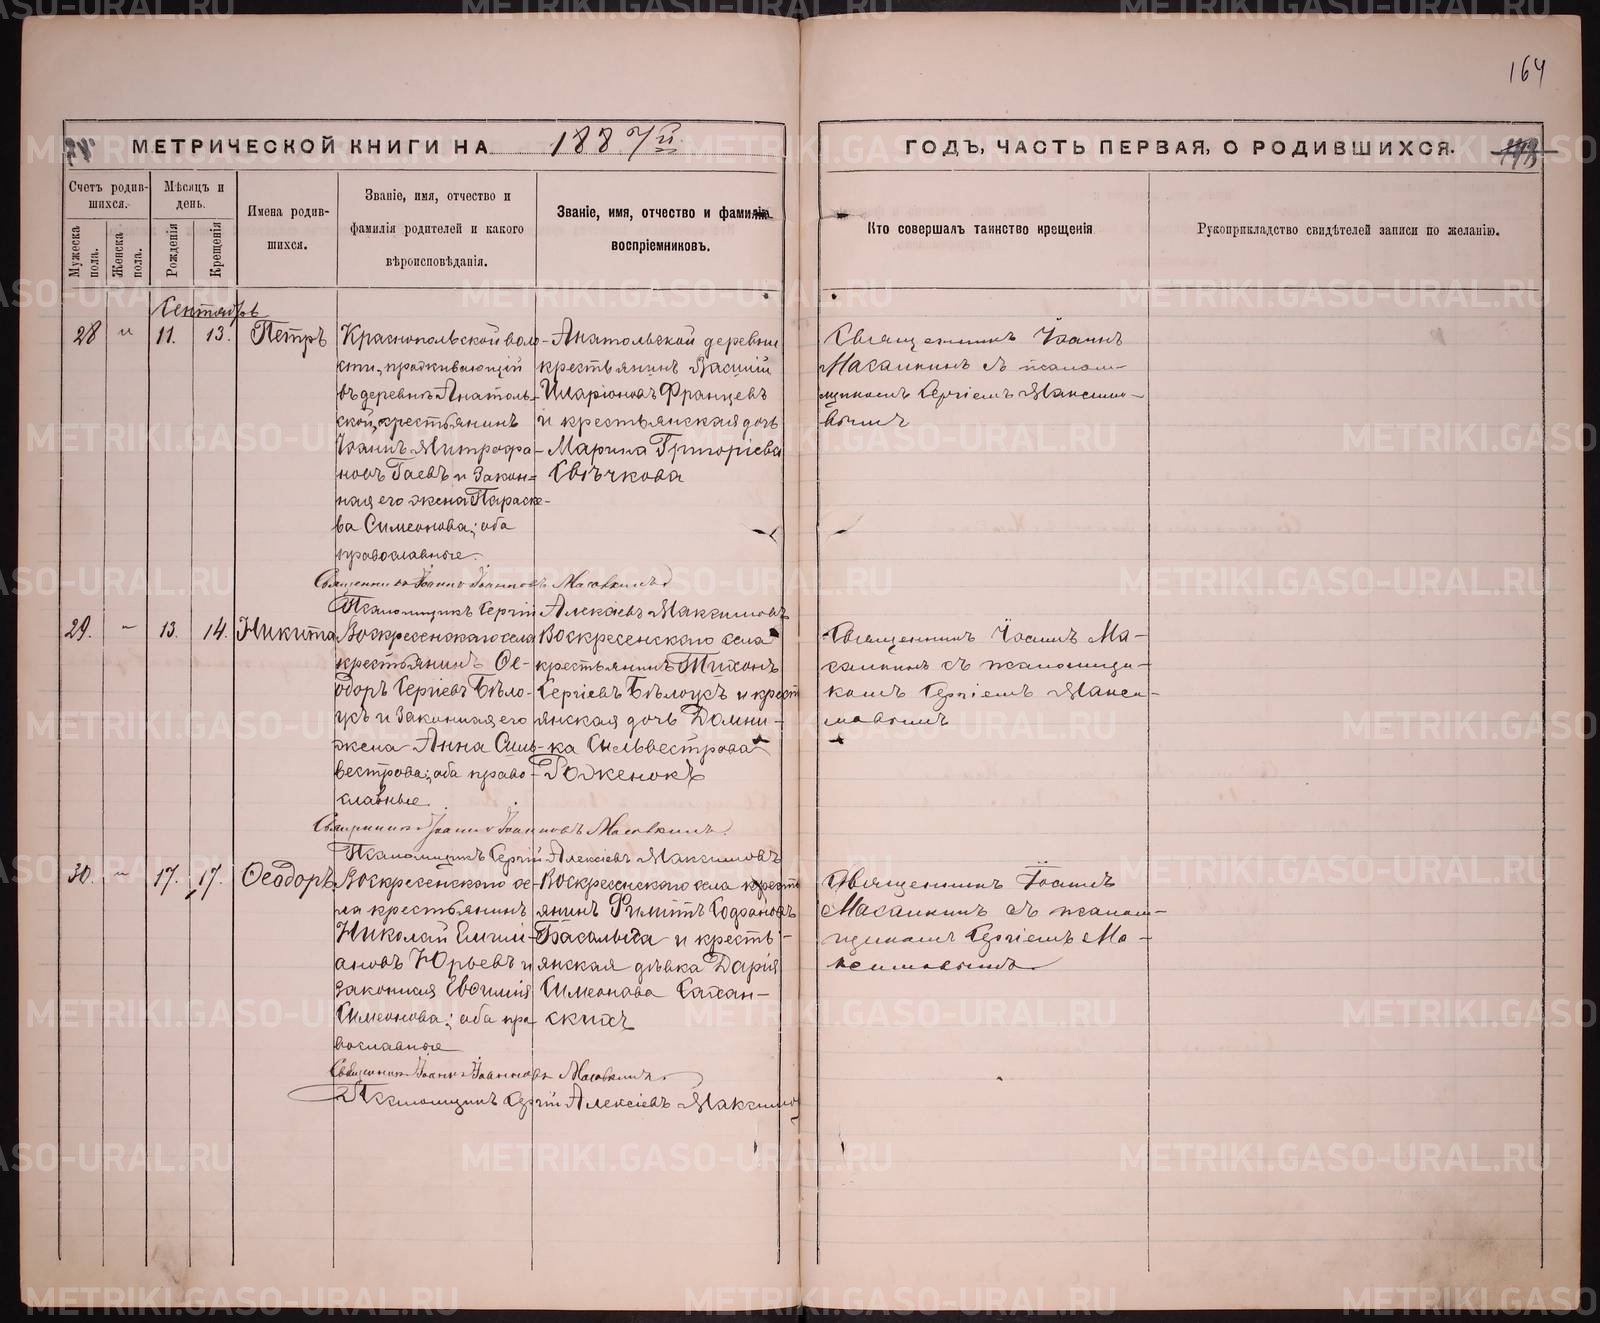 164
МЕТРИЧЕСКОЙ КНИГИ НА 1887й
ГОДЪ, ЧАСТЬ ПЕРВАЯ, О РОДИВШИХСЯ.
Счетъ родив-
шихся.
Мѣсяцъ и
день.
Мужеска
пола.
Женска
пола.
Рожденія
Крещенія
Имена родив-
шихся.
Званіе, имя, отчество и
фамилія родителей и какого
вѣроисповѣданія.
Званіе, имя, отчество и фамилія
воспріемниковъ.
Кто совершалъ таинство крещенія
Рукоприкладство свидѣтелей записи по желанію.
Сентябрь
28 " 11. 13. Петръ
Краснопольской воло-
сти, проживающій
въ деревнѣ Анатоль-
ской, крестьянинъ
Іоаннъ Митрофа-
новъ Гаевъ и закон-
ная его жена Параске-
ва Симеонова; оба
православные.
Анатольской деревни
крестьянинъ Василій
Иларіоновъ Францевъ
и крестьянская дочь
Марина Григоріева
Свѣчкова
Священникъ Іоаннъ
Масалкинъ съ псалом-
щикомъ Сергіемъ Макси-
вымъ
Священникъ Іоаннъ Іоанновъ
Псаломщикъ Сергій Алексѣевъ Максимовъ
29. " 13. 14. Никита
Воскресенскаго села
крестьянинъ Ѳе-
одоръ Сергіевъ Бѣло-
усъ и законная его
жена Анна Силь-
вестрова; оба право-
славные.
Воскресенскаго села
крестьянинъ Тихонъ
Сергіевъ Бѣлоусъ и крест
янская дочь Домни-
ка Сильвестрова
Священникъ Іоаннъ Ма-
салкинъ съ псаломщи-
комъ Сергіемъ Макси-
мовымъ
Священникъ Іоаннъ Іоанновъ
Псаломщикъ Сергій Алексіевъ Максимовъ
30. " 17. 17. Ѳеодоръ
Воскресенскаго се-
ла крестьянинъ
Николай Емили-
ановъ Юрьевъ и
законная Евѳимія
Симеонова; оба пра-
вославные
Воскресенскаго села крестъ
янинъ
и крестъ-
янская дѣвка Дарія
Симеонова Сахан-
скихъ
Священникъ Іоаннъ
Масалкинъ съ псалом-
щикомъ Сергіемъ Ма-
ксимовымъ
Священникъ Іоаннъ Іоанновъ
Псаломщикъ Сергій Алексіевъ Максимов
METRIKI.GASO-URAL.RU